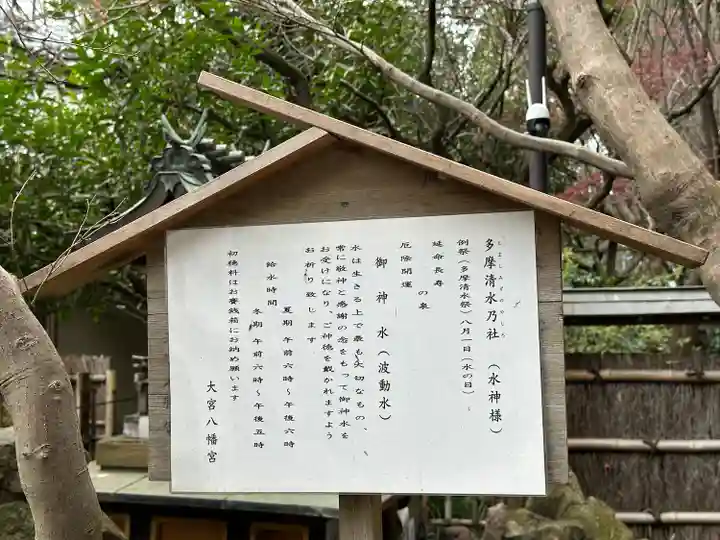 多摩清水乃社 (水神様)
たましみずのやしろ
例祭(多摩清水祭)八月一日(水の日)
延命長寿
の泉
厄除開運
御神水(波動水)
水は生きる上で最も大切なもの、
常に敬神と感謝の念をもって御神水を
お受けになり、ご神徳を戴かれますよう
お祈り致します
給水時間
夏期 午前六時〜午後六時
冬期 午前六時〜午後五時
初穂料はお賽銭箱にお納め願います
大宮八幡宮